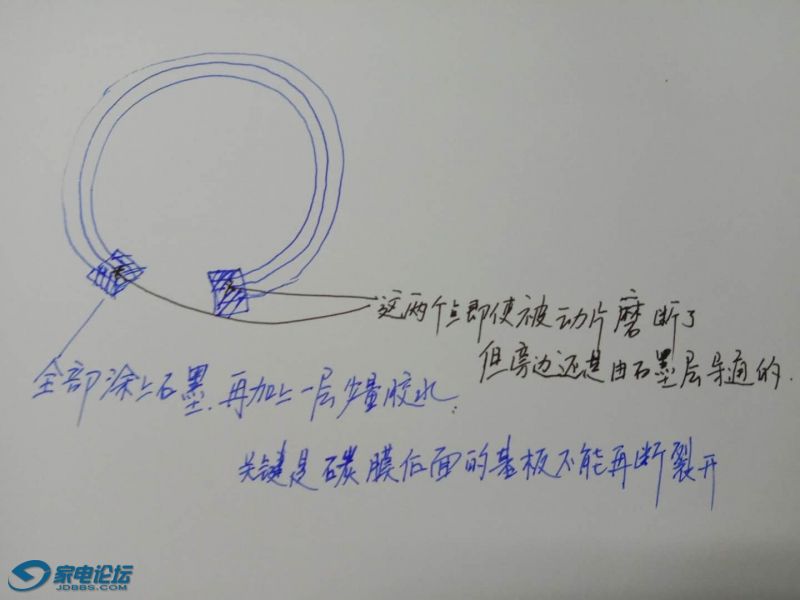 这两个点即使被动片磨断了
但旁边还是由石墨层导通的.
全部涂上石墨.再加上一层少量胶水.
关键是碳膜后面的基板不能再断裂开
家电论坛
JDBBS.COM